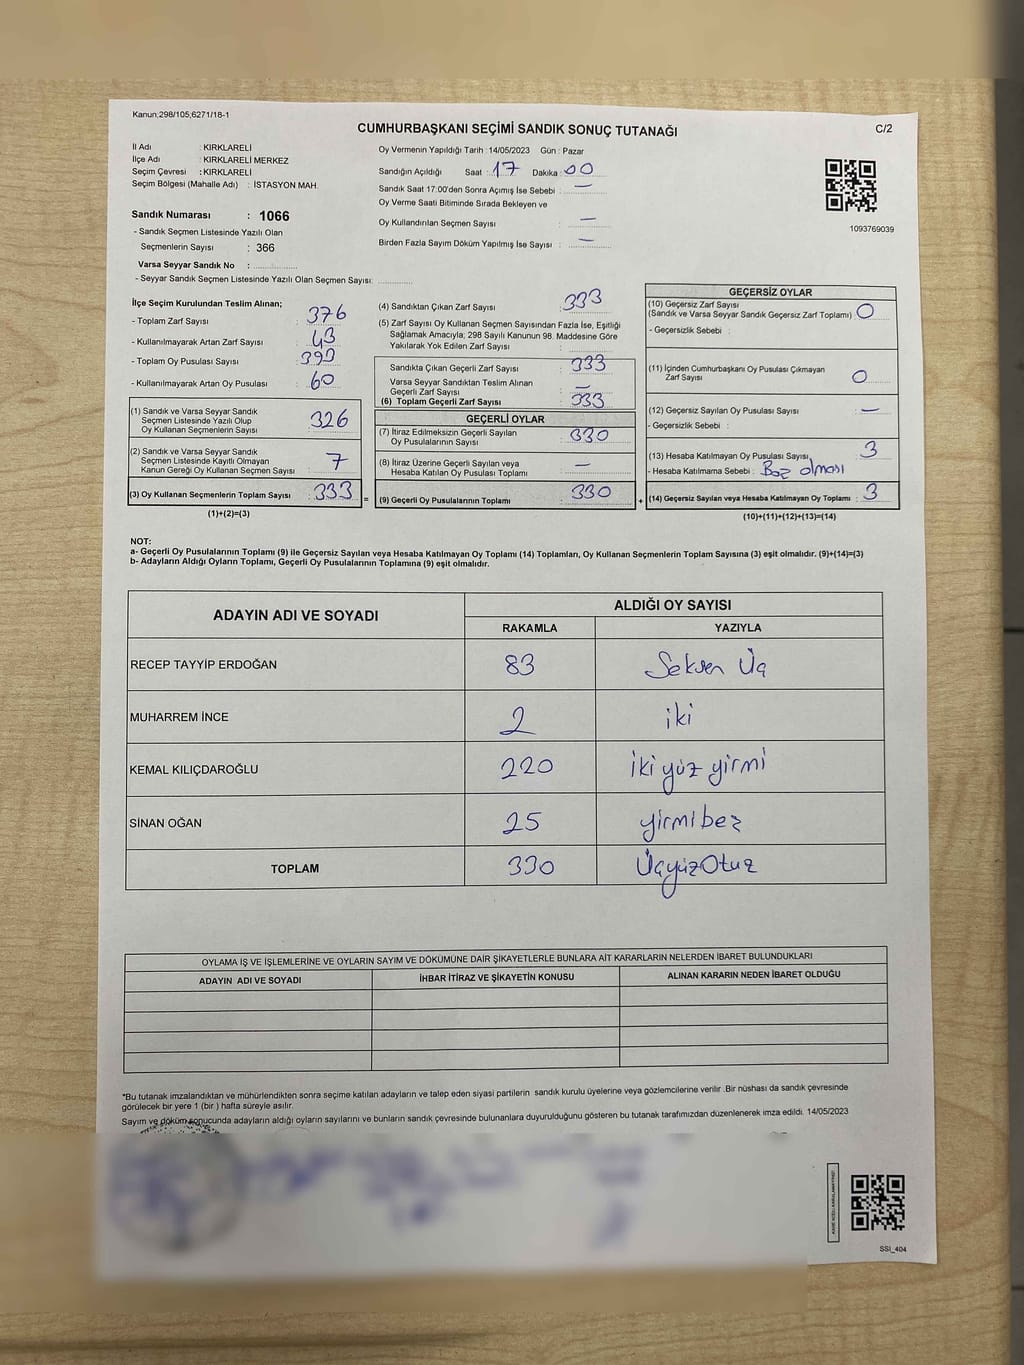 Kanun;298/105,6271/18-1
CUMHURBAŞKANI SEÇİMİ SANDIK SONUÇ TUTANAĞI
C/2
İl Adı : KIRKLARELİ
İlçe Adı : KIRKLARELİ MERKEZ
Seçim Çevresi : KIRKLARELİ
Seçim Bölgesi (Mahalle Adı) : İSTASYON MAH.
Sandık Numarası : 1066
- Sandık Seçmen Listesinde Yazılı Olan
Seçmenlerin Sayısı : 366
Varsa Seyyar Sandık No :
- Seyyar Sandık Seçmen Listesinde Yazılı Olan Seçmen Sayısı:
Oy Vermenin Yapıldığı Tarih : 14/05/2023 Gün : Pazar
Sandığın Açıldığı Saat : 17 Dakika : 00
Sandık Saat 17:00'den Sonra Açımış İse Sebebi : —
Oy Verme Saati Bitiminde Sırada Bekleyen ve
Oy Kullandırılan Seçmen Sayısı : —
Birden Fazla Sayım Döküm Yapılmış İse Sayısı : —
1093769039
İlçe Seçim Kurulundan Teslim Alınan;
- Toplam Zarf Sayısı : 376
- Kullanılmayarak Artan Zarf Sayısı : 43
- Toplam Oy Pusulası Sayısı : 390
- Kullanılmayarak Artan Oy Pusulası : 60
(1) Sandık ve Varsa Seyyar Sandık
Seçmen Listesinde Yazılı Olup
Oy Kullanan Seçmenlerin Sayısı : 326
(2) Sandık ve Varsa Seyyar Sandık
Seçmen Listesinde Kayıtlı Olmayan
Kanun Gereği Oy Kullanan Seçmen Sayısı : 7
(3) Oy Kullanan Seçmenlerin Toplam Sayısı : 333 =
(1)+(2)=(3)
(4) Sandıktan Çıkan Zarf Sayısı : 333
(5) Zarf Sayısı Oy Kullanan Seçmen Sayısından Fazla İse, Eşitliği
Sağlamak Amacıyla; 298 Sayılı Kanunun 98. Maddesine Göre
Yakılarak Yok Edilen Zarf Sayısı :
Sandıkta Çıkan Geçerli Zarf Sayısı : 333
Varsa Seyyar Sandıktan Teslim Alınan
Geçerli Zarf Sayısı : —
(6) Toplam Geçerli Zarf Sayısı : 333
GEÇERLİ OYLAR
(7) İtiraz Edilmeksizin Geçerli Sayılan
Oy Pusulalarının Sayısı : 330
(8) İtiraz Üzerine Geçerli Sayılan veya
Hesaba Katılan Oy Pusulası Toplamı : —
(9) Geçerli Oy Pusulalarının Toplamı : 330 +
GEÇERSİZ OYLAR
(10) Geçersiz Zarf Sayısı
(Sandık ve Varsa Seyyar Sandık Geçersiz Zarf Toplamı) : 0
- Geçersizlik Sebebi :
(11) İçinden Cumhurbaşkanı Oy Pusulası Çıkmayan
Zarf Sayısı : 0
(12) Geçersiz Sayılan Oy Pusulası Sayısı : —
- Geçersizlik Sebebi :
(13) Hesaba Katılmayan Oy Pusulası Sayısı : 3
- Hesaba Katılmama Sebebi : Boş olması
(14) Geçersiz Sayılan veya Hesaba Katılmayan Oy Toplamı : 3
(10)+(11)+(12)+(13)=(14)
NOT:
a- Geçerli Oy Pusulalarının Toplamı (9) ile Geçersiz Sayılan veya Hesaba Katılmayan Oy Toplamı (14) Toplamları, Oy Kullanan Seçmenlerin Toplam Sayısına (3) eşit olmalıdır. (9)+(14)=(3)
b- Adayların Aldığı Oyların Toplamı, Geçerli Oy Pusulalarının Toplamına (9) eşit olmalıdır.
ADAYIN ADI VE SOYADI
ALDIĞI OY SAYISI
RAKAMLA YAZIYLA
RECEP TAYYİP ERDOĞAN 83 Seksen Üç
MUHARREM İNCE 2 iki
KEMAL KILIÇDAROĞLU 220 iki yüz yirmi
SİNAN OĞAN 25 yirmi beş
TOPLAM 330 ÜçyüzOtuz
OYLAMA İŞ VE İŞLEMLERİNE VE OYLARIN SAYIM VE DÖKÜMÜNE DAİR ŞİKAYETLERLE BUNLARA AİT KARARLARIN NELERDEN İBARET BULUNDUKLARI
ADAYIN ADI VE SOYADI İHBAR İTİRAZ VE ŞİKAYETİN KONUSU ALINAN KARARIN NEDEN İBARET OLDUĞU
*Bu tutanak imzalandıktan ve mühürlendikten sonra seçime katılan adayların ve talep eden siyasi partilerin sandık kurulu üyelerine veya gözlemcilerine verilir .Bir nüshası da sandık çevresinde
görülecek bir yere 1 (bir ) hafta süreyle asılır.
Sayım ve döküm sonucunda adayların aldığı oyların sayılarını ve bunların sandık çevresinde bulunanlara duyurulduğunu gösteren bu tutanak tarafımızdan düzenlenerek imza edildi. 14/05/2023
SSI_404